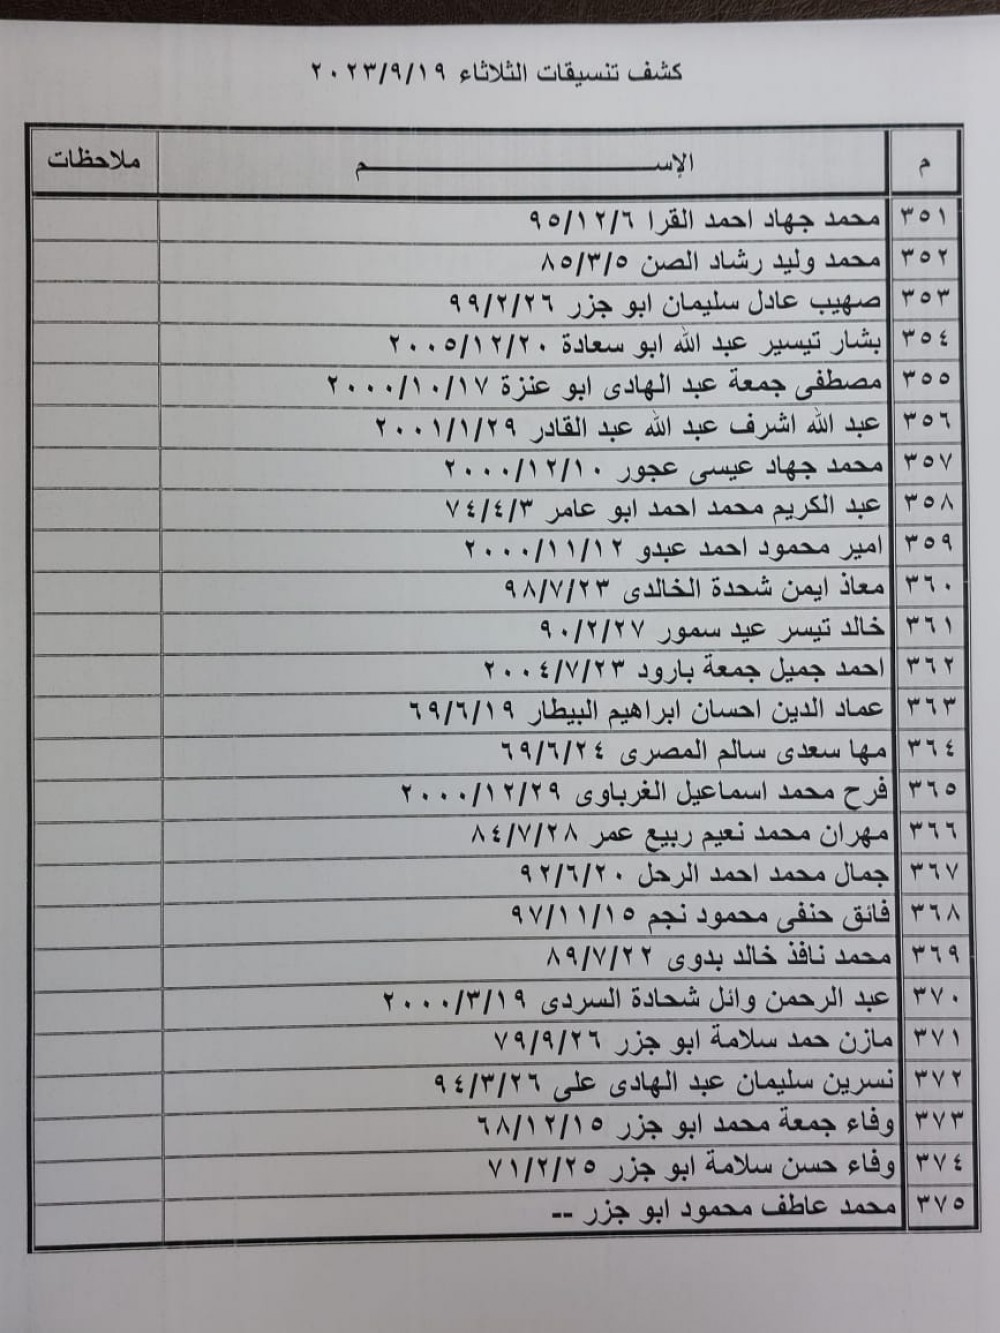 كشف تنسيقات الثلاثاء ٢٠٢٣/٩/١٩
م الإسم ملاحظات
٣٥١ محمد جهاد احمد القرا ٩٥/١٢/٦
٣٥٢ محمد وليد رشاد الصن ٨٥/٣/٥
٣٥٣ صهيب عادل سليمان ابو جزر ٩٩/٢/٢٦
٣٥٤ بشار تيسير عبد الله ابو سعادة ٢٠٠٥/١٢/٢٠
٣٥٥ مصطفى جمعة عبد الهادى ابو عنزة ٢٠٠٠/١٠/١٧
٣٥٦ عبد الله اشرف عبد الله عبد القادر ٢٠٠١/١/٢٩
٣٥٧ محمد جهاد عيسى عجور ٢٠٠٠/١٢/١٠
٣٥٨ عبد الكريم محمد احمد ابو عامر ٧٤/٤/٣
٣٥٩ امير محمود احمد عبدو ٢٠٠٠/١١/١٢
٣٦٠ معاذ ايمن شحدة الخالدى ٩٨/٧/٢٣
٣٦١ خالد تيسر عيد سمور ٩٠/٢/٢٧
٣٦٢ احمد جميل جمعة بارود ٢٠٠٤/٧/٢٣
٣٦٣ عماد الدين احسان ابراهيم البيطار ٦٩/٦/١٩
٣٦٤ مها سعدى سالم المصرى ٦٩/٦/٢٤
٣٦٥ فرح محمد اسماعيل الغرباوى ٢٠٠٠/١٢/٢٩
٣٦٦ مهران محمد نعيم ربيع عمر ٨٤/٧/٢٨
٣٦٧ جمال محمد احمد الرحل ٩٢/٦/٢٠
٣٦٨ فائق حنفى محمود نجم ٩٧/١١/١٥
٣٦٩ محمد نافذ خالد بدوى ٨٩/٧/٢٢
٣٧٠ عبد الرحمن وائل شحادة السردى ٢٠٠٠/٣/١٩
٣٧١ مازن حمد سلامة ابو جزر ٧٩/٩/٢٦
٣٧٢ نسرين سليمان عبد الهادى على ٩٤/٣/٢٦
٣٧٣ وفاء جمعة محمد ابو جزر ٦٨/١٢/١٥
٣٧٤ وفاء حسن سلامة ابو جزر ٧١/٢/٢٥
٣٧٥ محمد عاطف محمود ابو جزر --